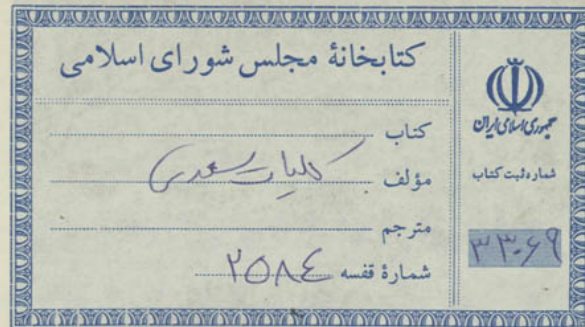 کتابخانهٔ مجلس شورای اسلامی
کتاب
کلیات سعدی
مؤلف
مترجم
شمارهٔ قفسه ۲۵۸۴
جمهوری اسلامی ایران
شماره ثبت کتاب
۳۳۰۶۹